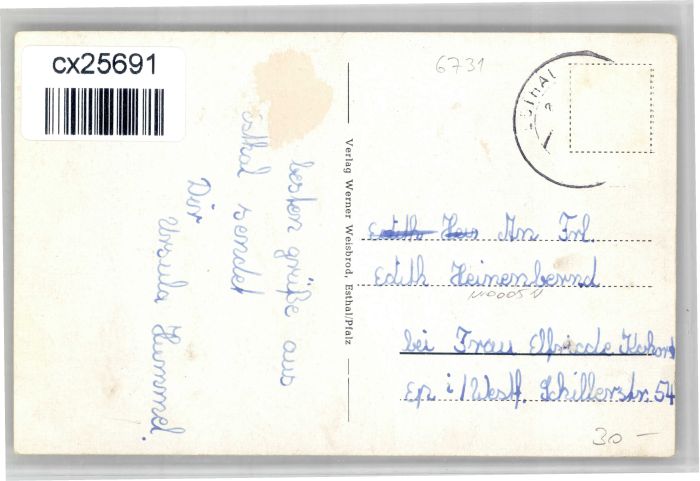 cx25691
besten grüße aus
Esthal sendet
Dir
Ursula Hummel.
Verlag Werner Weisbrod, Esthal/Pfalz
6731
ESTHAL
Edith An Frl.
Edith Heinenbernd
bei Frau Elfriede
i/Westf. Schillerstr. 54
30 —